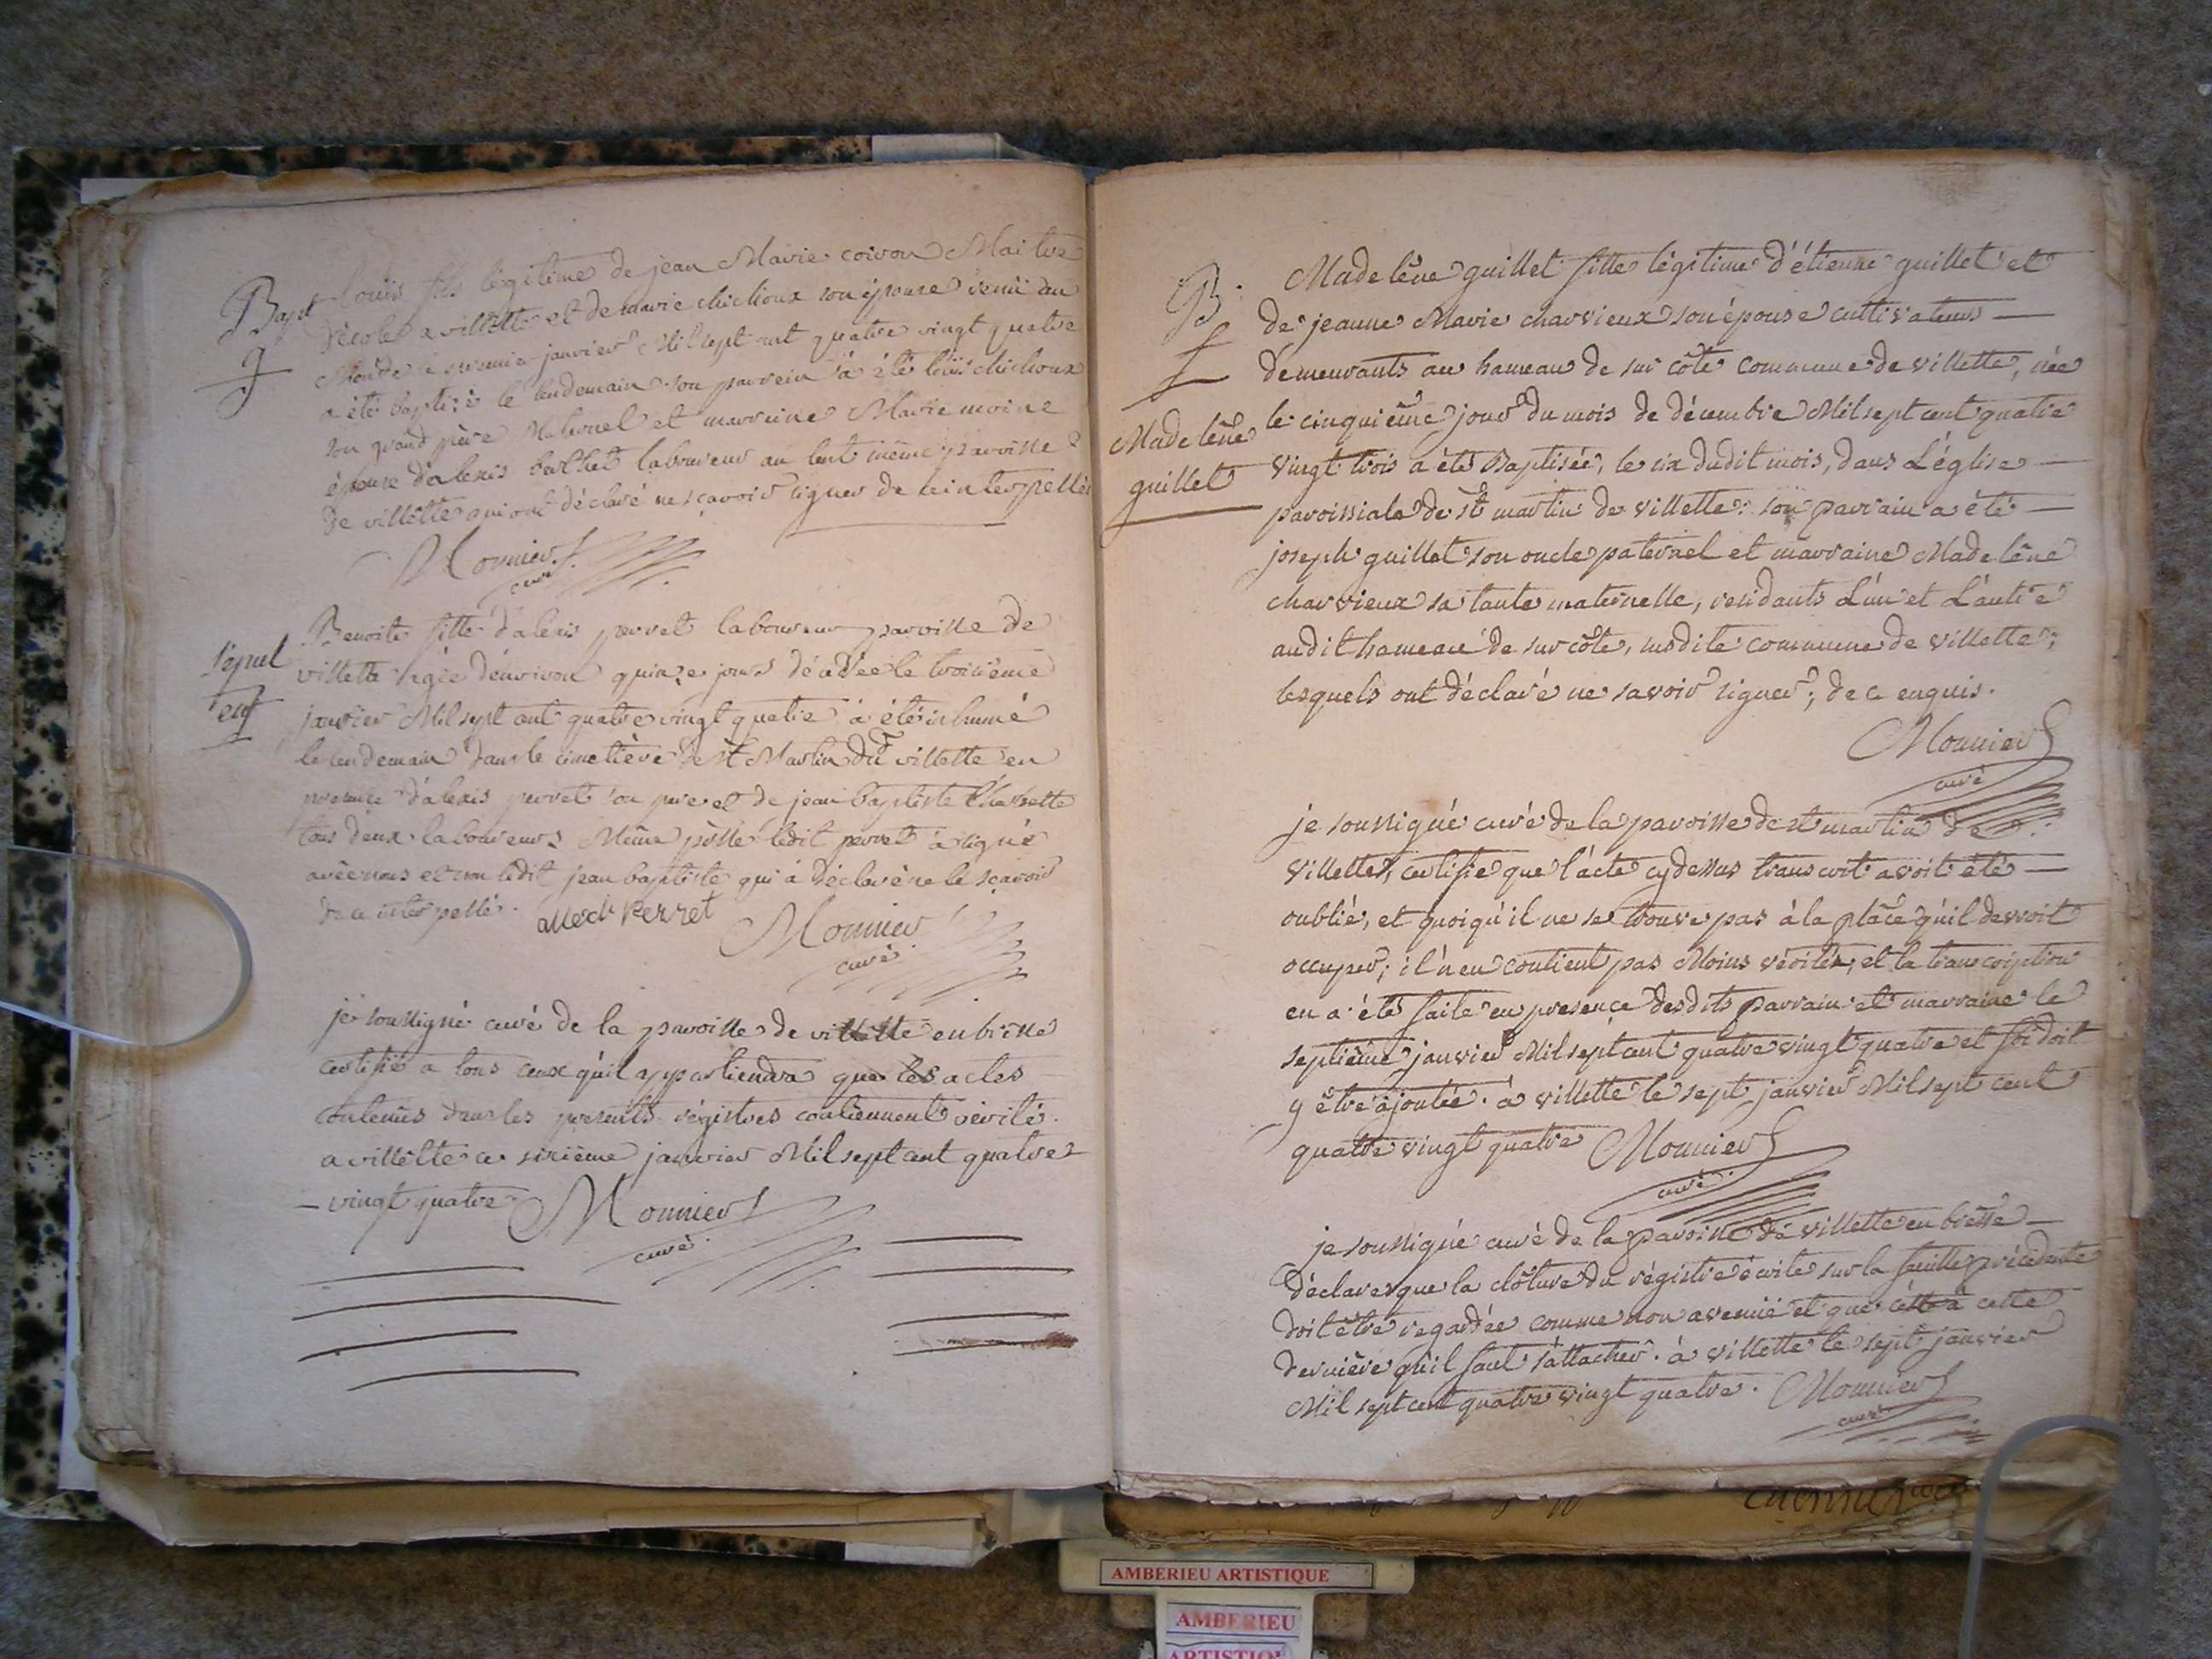 Bapt
g
Louis fils légitime de jean Marie coiron Maitre
d'école a villette et de marie chichoux son épouse venu au
Monde le premier janvier Mil sept cent quatre vingt quatre
a été baptisé le lendemain. son parrein à été loüis chichoux
son grand père Maternel et marreine Marie moine
épouse d'alexis berthet laboureur au tout même paroisse
de villette qui ont déclaré ne sçavoir signer de ce interpellés
Monnier
curé
Sepul
enf
Benoite fille d'alexis perret laboureur paroisse de
villette agée d'environ quinze jours décédée le troisième
janvier Mil sept cent quatre vingt quatre à été inhumé
le lendemain dans le cimetière de st Martin dud villette en
presence d'alexis perret son pere et de jean baptiste
tous deux laboureurs Même psse ledit perret à signé
avec nous et non ledit jean baptiste qui à déclaré ne le sçavoir
de ce interpellé.
allexit Perret
Monnier
curé
je soussigné curé de la paroisse de villette en bresse
certifie a tous ceux qu'il appartiendra que les actes
contenus dans les presents régistres contiennent vérité.
a villette ce sixième janvier Mil sept cent quatre
- vingt quatre Monnier
curé.
B.
Madelène
guillet
Madelène guillet fille légitime d'étienne guillet et
de jeanne Marie charvieux son épouse cultivateurs —
demeurants au hameau de sur côte commune de villette, née
le cinquième jour du mois de décembre Mil sept cent quatre
vingt trois a été Baptisée, le six dudit mois, dans L'église —
paroissiale de st martin de villette: son parrain a été —
joseph guillet son oncle paternel et marraine Madelène
charvieux sa tante maternelle, residants L'un et L'autre
audit hameau de sur côte, susdite commune de villette;
lesquels ont déclaré ne savoir signer; de ce enquis.
Monnier
curé
je soussigné curé de la paroisse de st martin de
villette, certifie que l'acte cy dessus transcrit avoit été —
oublié, et quoiqu'il ne se trouve pas à la place qu'il devroit
occuper; il n'en contient pas Moins vérité, et la transcription
en a été faite en presence desdits parrain et marraine le
septième janvier Mil sept cent quatre vingt quatre et foi doit
y être ajoutée. à villette le sept janvier Mil sept cent
quatre vingt quatre Monnier
curé.
je soussigné curé de la paroisse de villette en bresse —
déclare que la clôture du régistre écrite sur la feuille précédente
doit être regardée comme non avenüe et que c'est à cette
dernière qu'il faut s'attacher. à villette le sept janvier
Mil sept cent quatre vingt quatre. Monnier
curé
AMBERIEU ARTISTIQUE
AMBERIEU
ARTISTIQUE